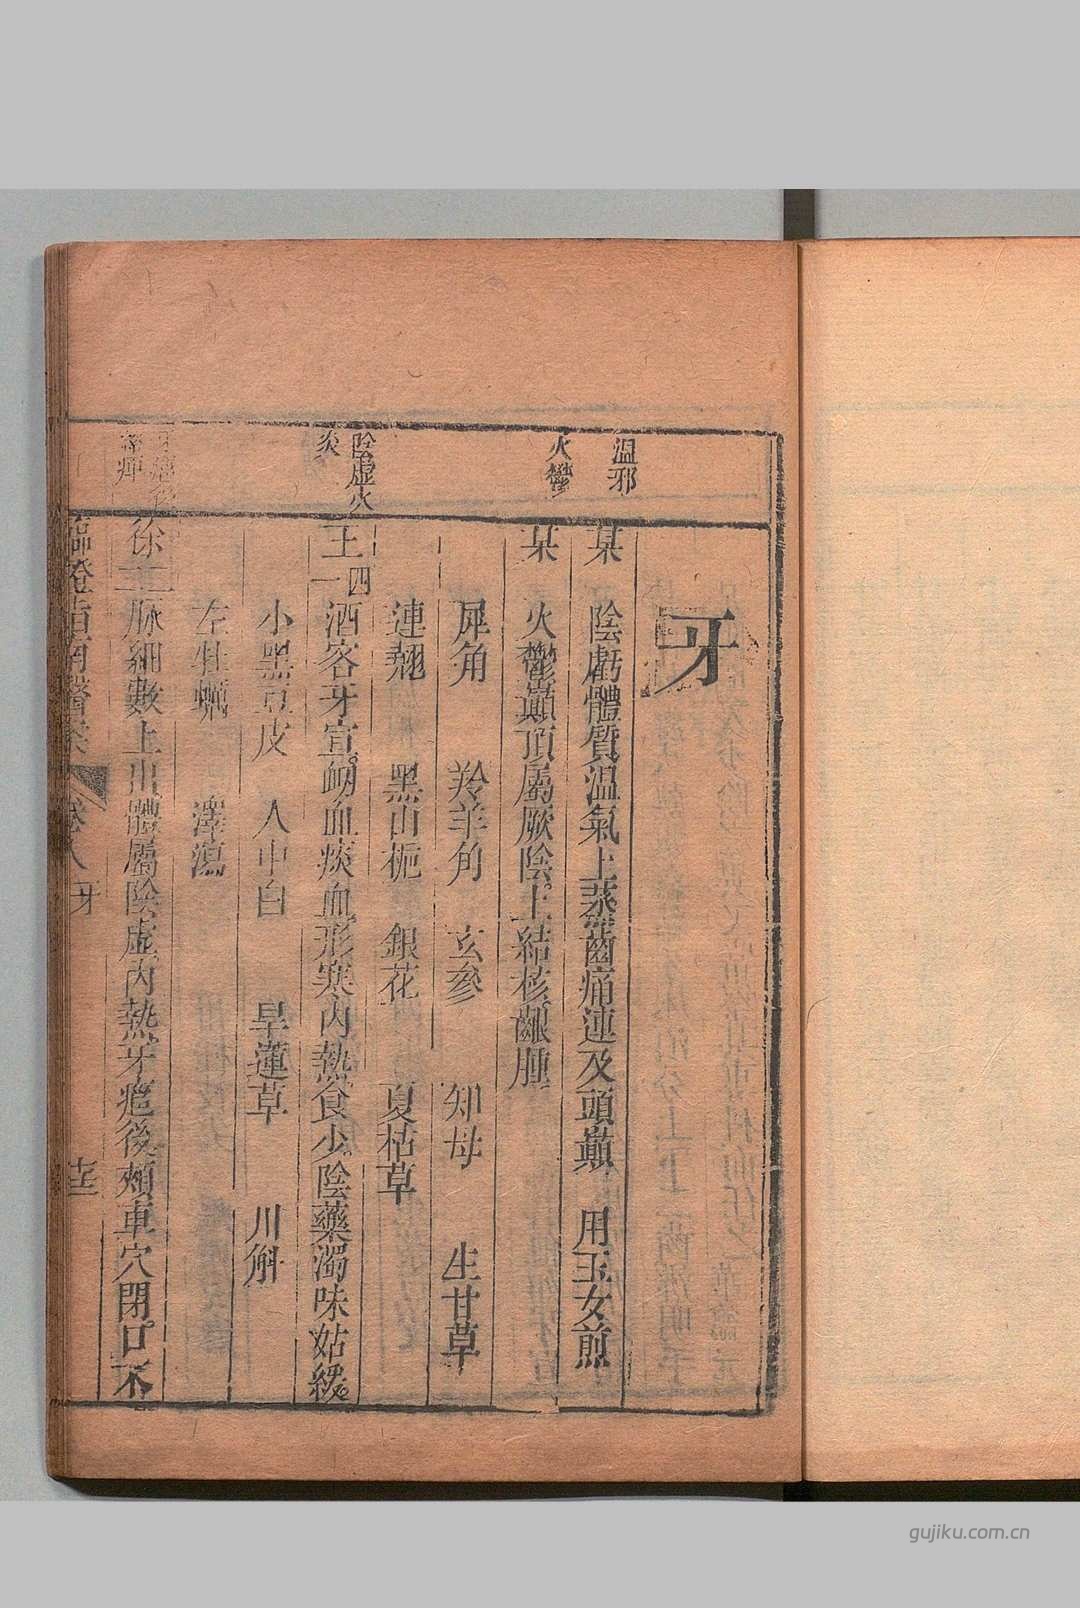 牙
溫邪
某 陰虧體質溫氣上蒸齒痛連及頭巔 用玉女煎
火鬱
某 火鬱巔頂屬厥陰上結核齦腫
犀角 羚羊角 玄參 知母 生甘草
連翹 黑山梔 銀花 夏枯草
陰虛火
炎
王四一 酒客牙宣衂血痰血形寒內熱食少陰藥濁味姑緩
小黑豆皮 人中白 旱蓮草 川斛
左牡蠣 澤瀉
徐 脉細數上出體屬陰虛內熱牙疳後頰車穴閉口不
臨證指南醫案 卷八 牙
gujiku.com.cn